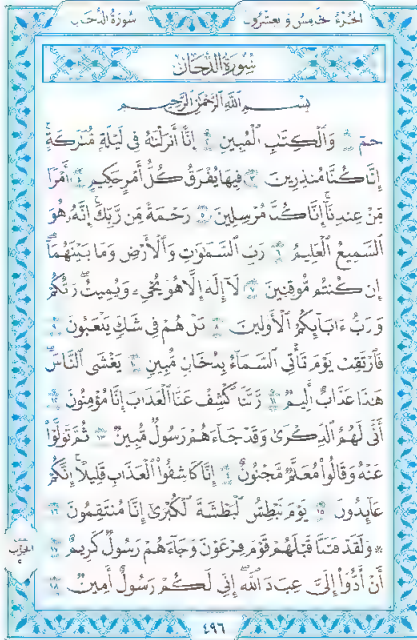 الجزء الخامس والعشرون
سورة الدخان
سورة الدخان
بسم الله الرحمن الرحيم
حم ١ والكتاب المبين ٢ إنا أنزلناه في ليلة مباركة
إنا كنا منذرين ٣ فيها يفرق كل أمر حكيم ٤ أمرا
من عندنا إنا كنا مرسلين ٥ رحمة من ربك إنه هو
السميع العليم ٦ رب السموات والأرض وما بينهما
إن كنتم موقنين ٧ لا إله إلا هو يحيي ويميت ربكم
ورب ءابائكم الأولين ٨ بل هم في شك يلعبون ٩
فارتقب يوم تأتي السماء بدخان مبين ١٠ يغشى الناس
هذا عذاب أليم ١١ ربنا اكشف عنا العذاب إنا مؤمنون ١٢
أنى لهم الذكرى وقد جاءهم رسول مبين ١٣ ثم تولوا
عنه وقالوا معلم مجنون ١٤ إنا كاشفوا العذاب قليلا إنكم
عائدون ١٥ يوم نبطش البطشة الكبرى إنا منتقمون ١٦
۞ ولقد فتنا قبلهم قوم فرعون وجاءهم رسول كريم ١٧
أن أدوا إلي عباد الله إني لكم رسول أمين ١٨
٤٩٦